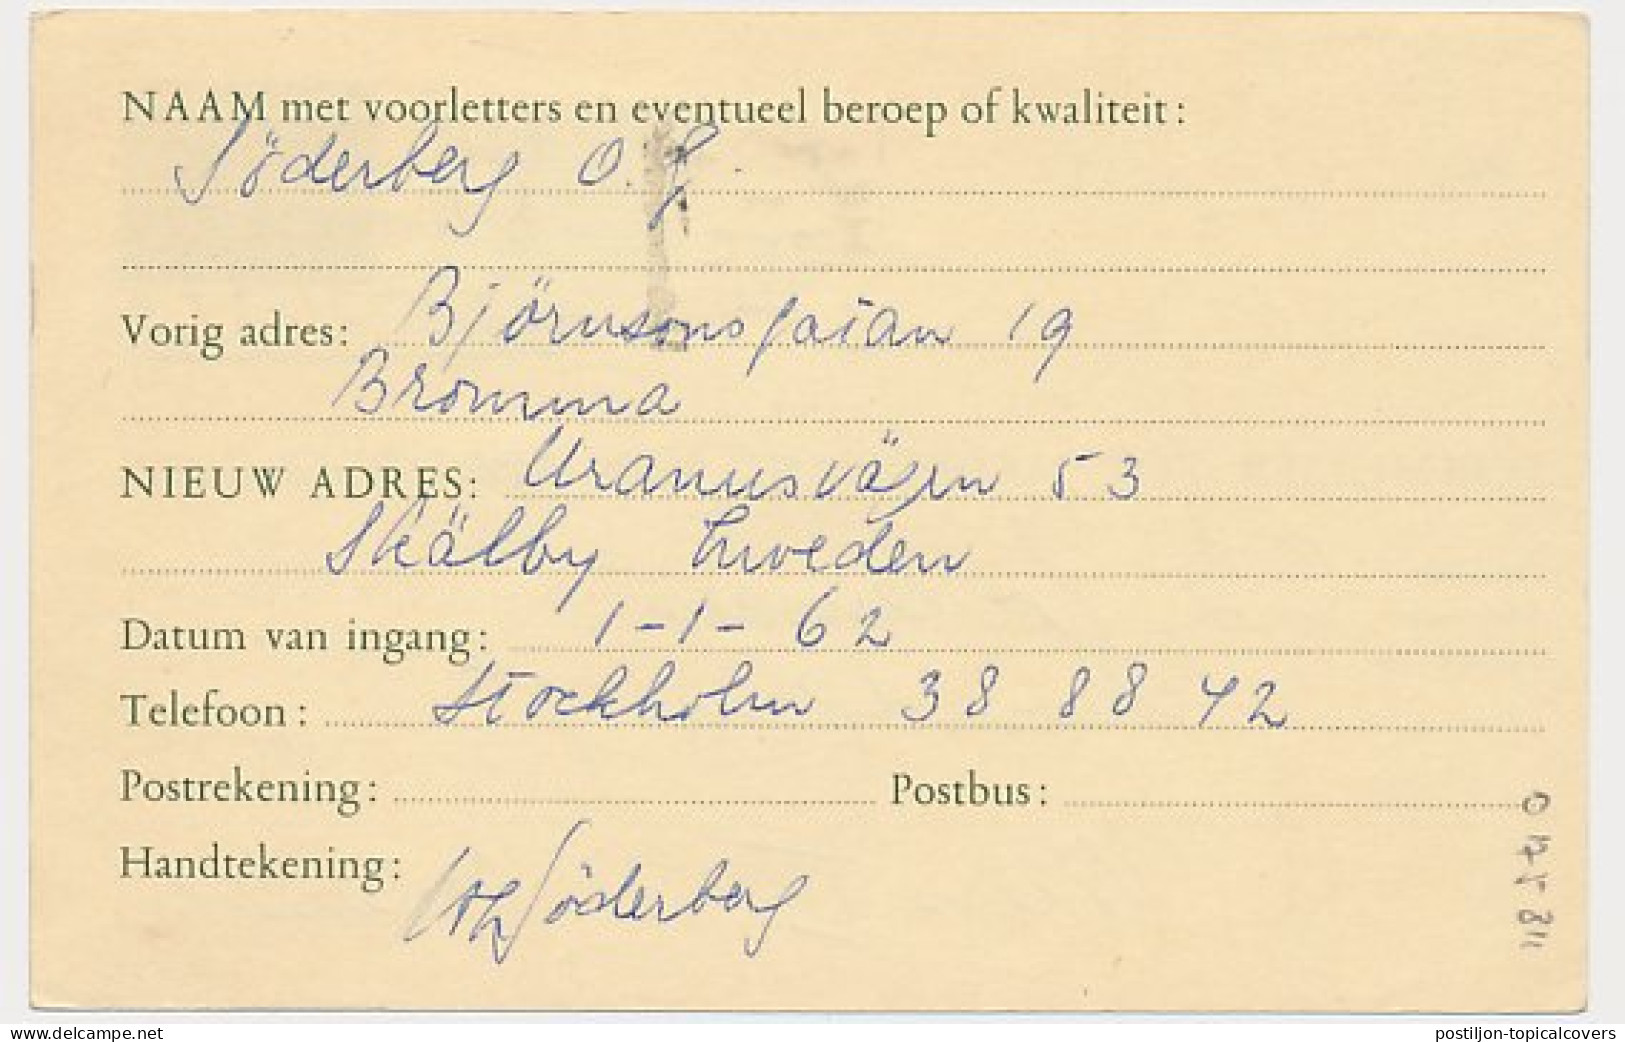 NAAM met voorletters en eventueel beroep of kwaliteit:
Söderberg O.
Vorig adres: Björnsonsgatan 19
Bromma
NIEUW ADRES: Uranusvägen 53
Skälby Zweden
Datum van ingang: 1-1-62
Telefoon: Stockholm 38 88 42
Postrekening: Postbus:
Handtekening: Söderberg
postiljon-topicalcovers
www.delcampe.net